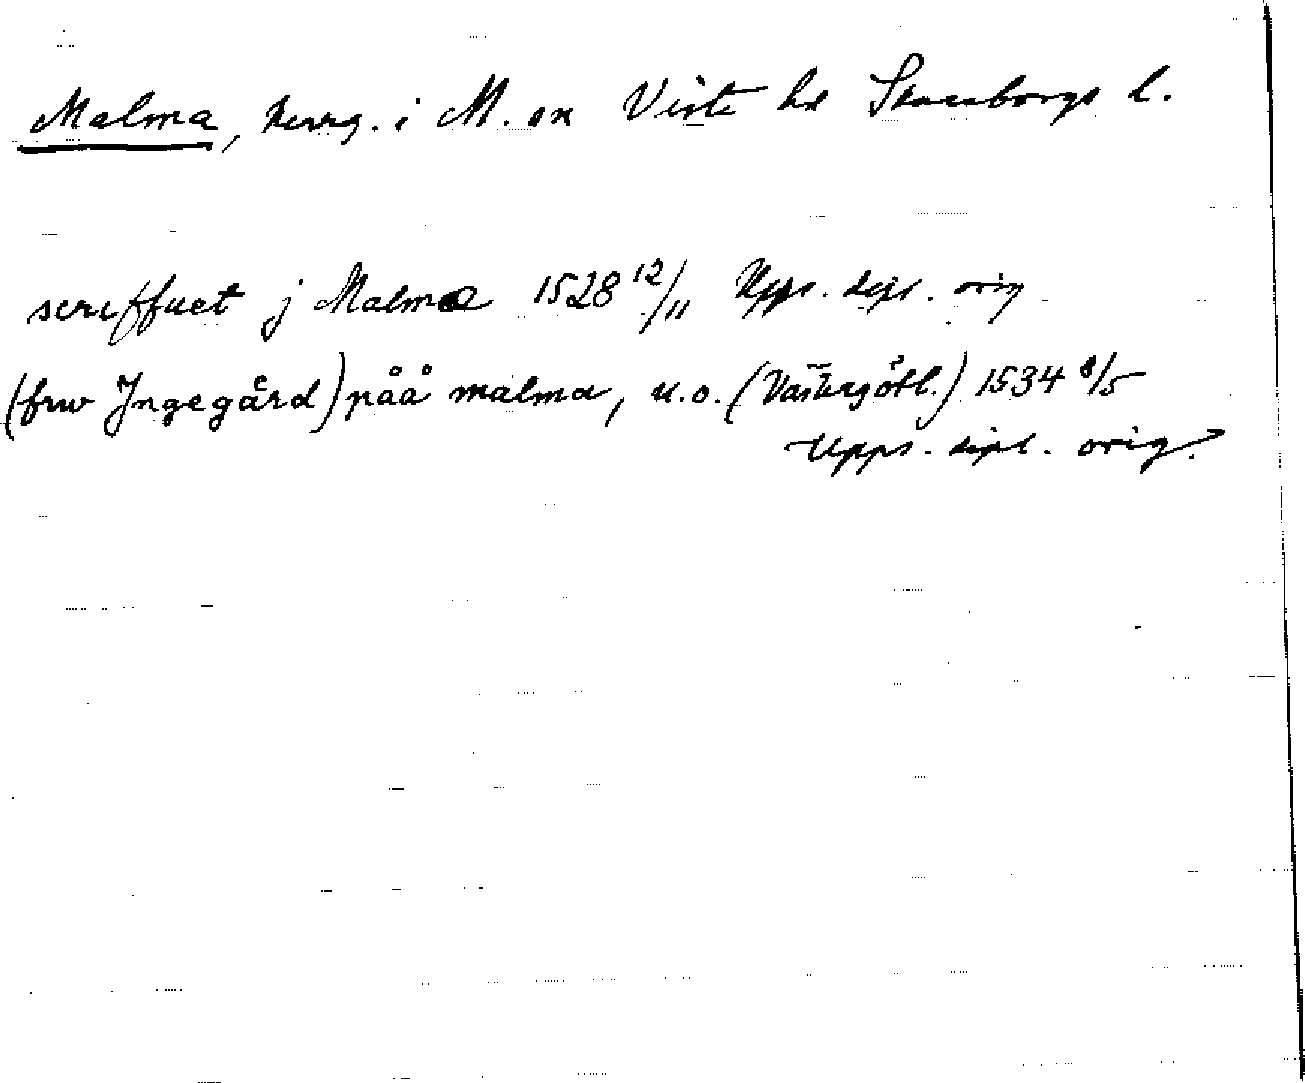 Malma, herrg. i M. sn Viste hd Skaraborgs l.
scriffuet j Malma 1528 12/11 Upps. dipl. orig
(frw Jngegård) påå malma, u.o. (Västergötl.) 1534 8/5
Upps. dipl. orig.